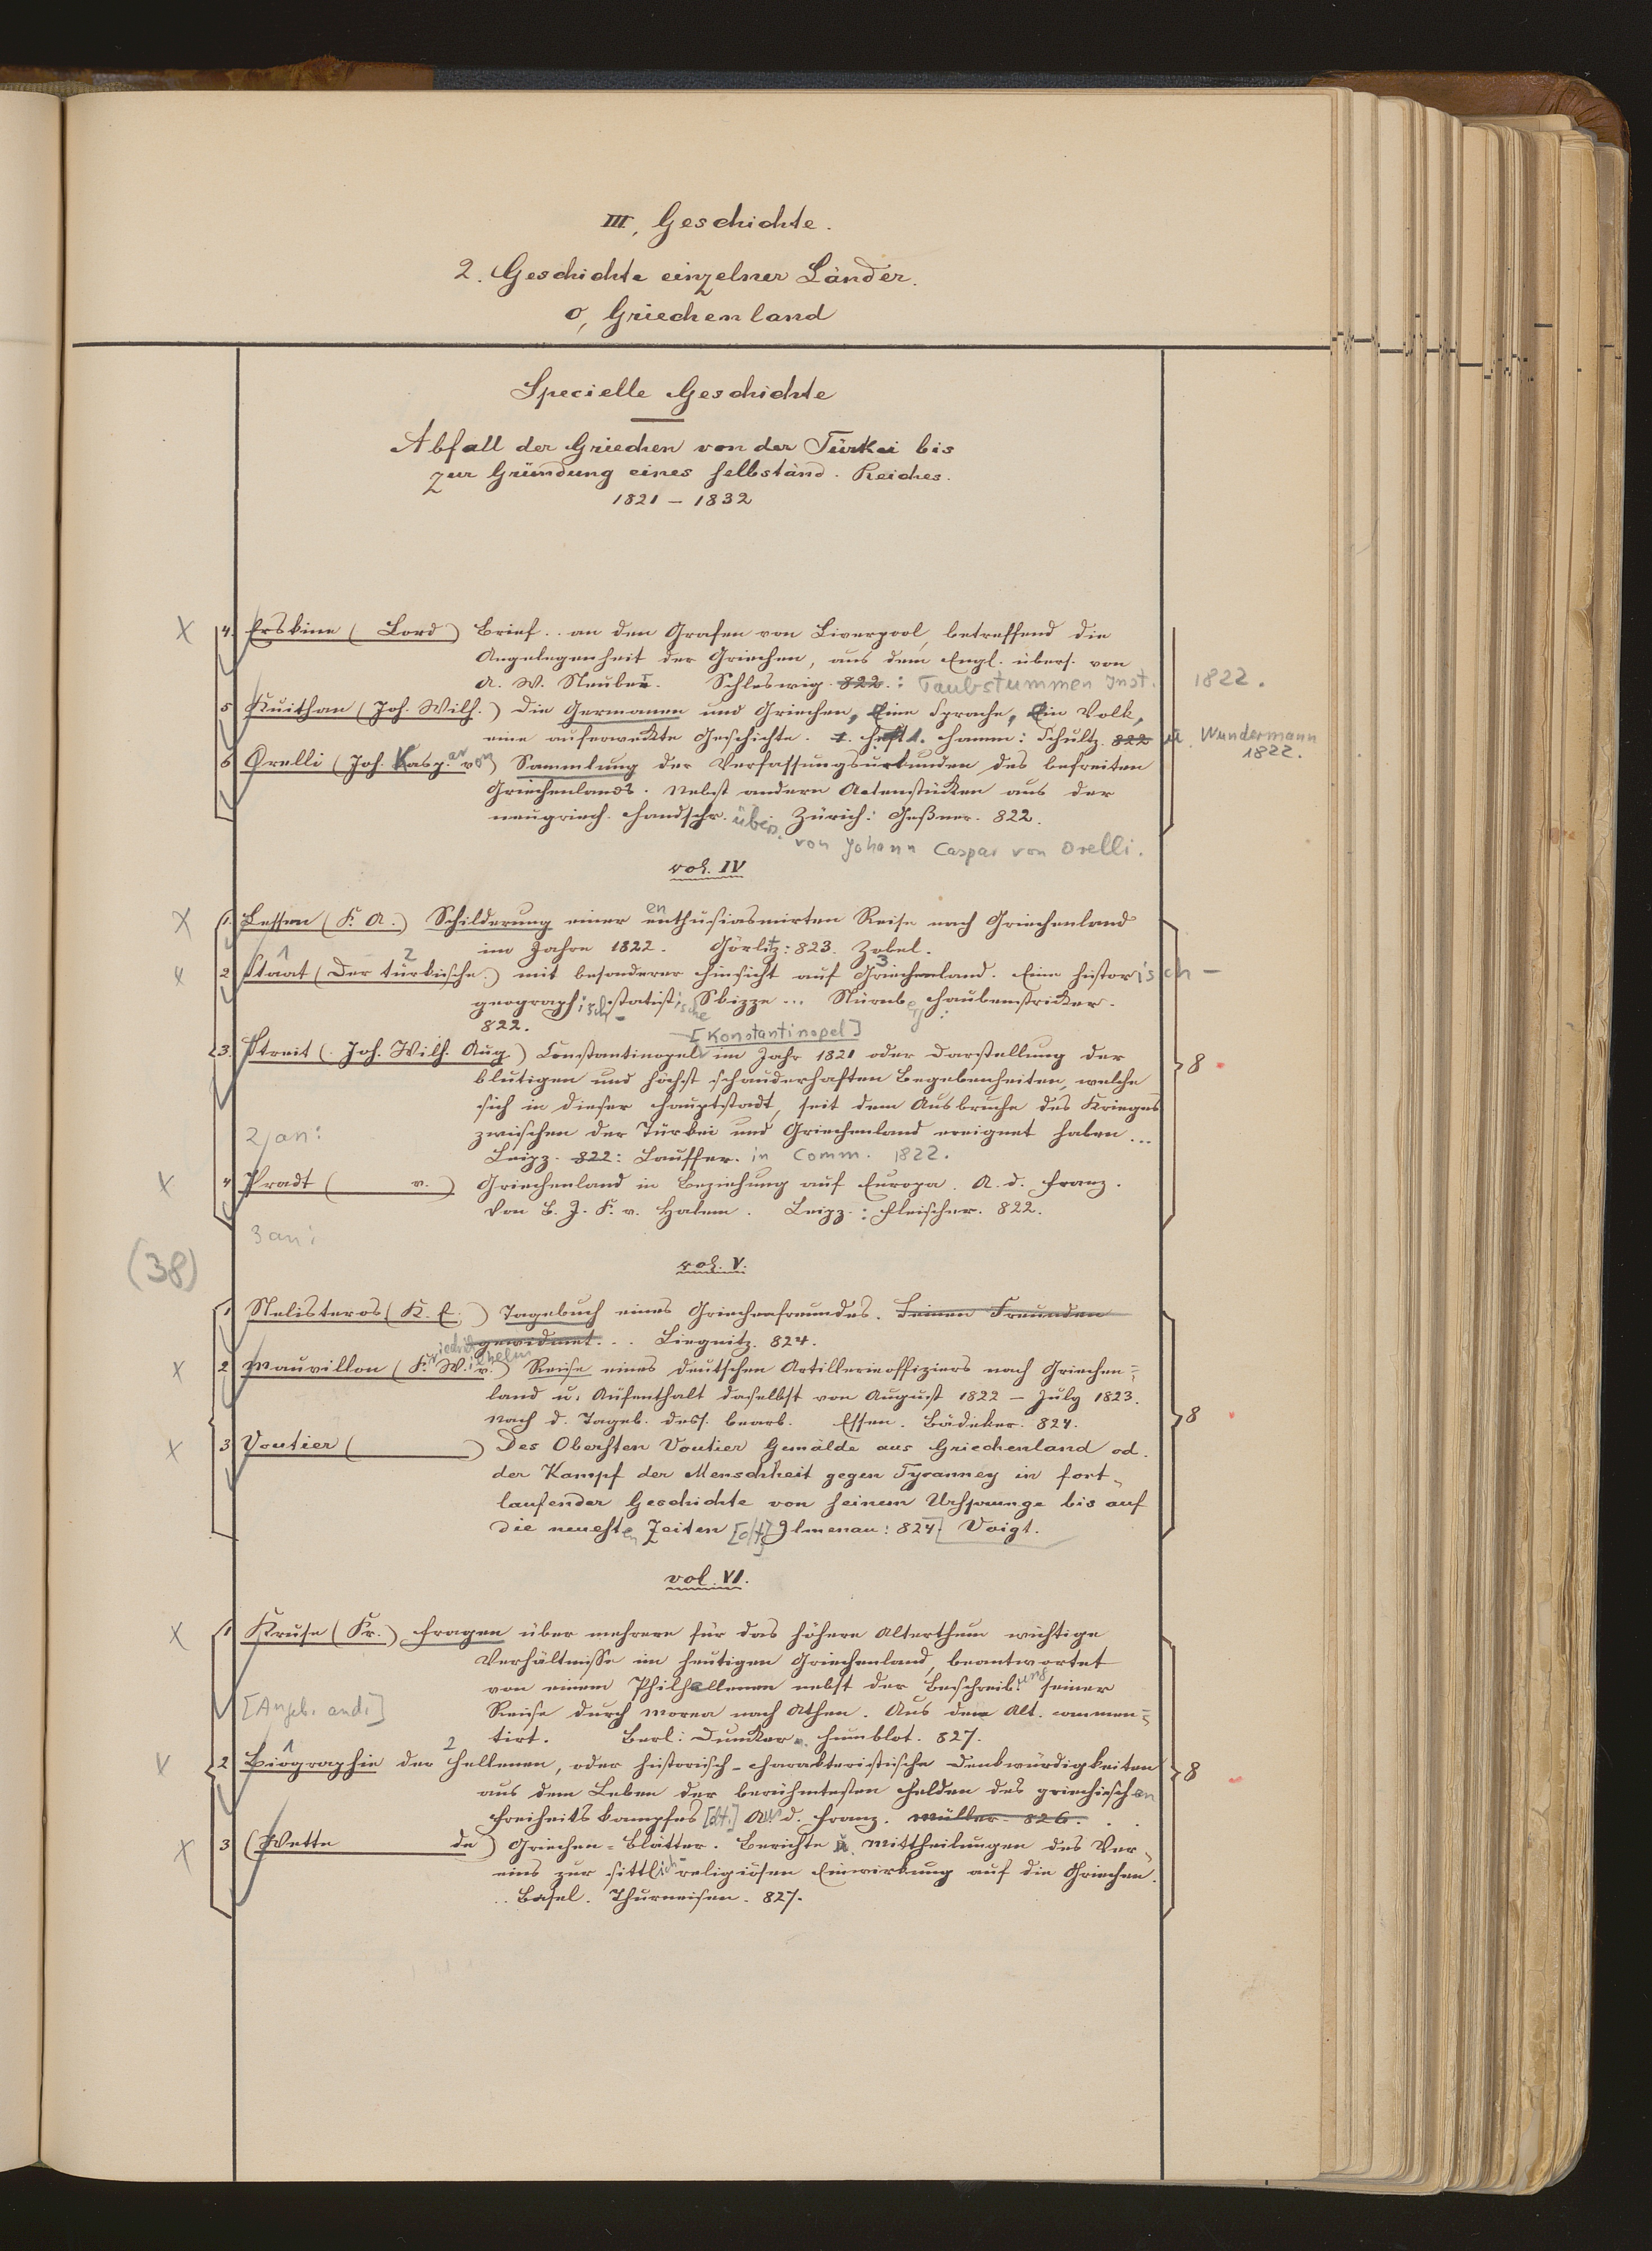 III, Geschichte.
2. Geschichte einzelner Länder.
o, Griechenland
Specielle Geschichte
Abfall der Griechen von der Türkei bis
zur Gründung eines selbständ. Reiches.
1821 – 1832
X 4. Erskine ( Lord ) Brief .. an den Grafen von Liverpool, betreffend die
Angelegenheit der Griechen, aus dem Engl. übers. von
A. W. Neuber. Schleswig. 822. : Taubstummen Inst. 1822.
5 Kuithan (Joh. Wilh.) Die Germanen und Griechen, Eine Sprache, Ein Volk,
eine auferweckte Geschichte. 1. Heft 1. Hamm: Schultz. 822 u. Wundermann
1822.
6 Orelli (Joh. Kaspar von) Sammlung der Verfassungsurkunden des befreiten
Griechenlands. Nebst andern Actenstücken aus der
neugriech. Handschr. übers. Zürich: Geßner. 822.
von Johann Caspar von Orelli.
vol. IV
X 1. Lessen (F. A.) Schilderung einer enthusiasmirten Reise nach Griechenland
im Jahre 1822. Görlitz: 823. Zobel.
x 2 Staat (Der türkische) mit besonderer Hinsicht auf Griechenland. Eine historisch-
geographisch-statistische Skizze ... Nürnberg: Haubenstricker.
822.
[Konstantinopel]
3. Streit ( Joh. Wilh. Aug.) Constantinopel im Jahr 1821 oder Darstellung der 8
blutigen und höchst schauderhaften Begebenheiten, welche
sich in dieser Hauptstadt, seit dem Ausbruche des Krieges
2 an: zwischen der Türkei und Griechenland ereignet haben ...
Leipz. 822: Lauffer. in Comm. 1822.
X 4 Pradt ( v. ) Griechenland in Beziehung auf Europa. A. d. Franz.
Von B. J. F. v. Halem. Leipz.: Fleischer. 822.
3 an:
(38)
vol. V.
1 Stelisteros (K. E.) Tagebuch eines Griechenfreundes. Seinen Freunden
gewidmet. .. Liegnitz. 824.
x 2 Mauvillon (Friedrich Wilhelm v.) Reise eines deutschen Artillerieoffiziers nach Griechen=
land u. Aufenthalt daselbst von August 1822 – July 1823.
Nach d. Tageb. dess. bearb. Essen. Bädeker. 824. 8
x 3 Voutier ( ) Des Obersten Voutier Gemälde aus Griechenland od.
der Kampf der Menschheit gegen Tyranney in fort-
laufender Geschichte von seinem Ursprunge bis auf
die neuesten Zeiten [dt.] Ilmenau: 824. Voigt.
vol. VI.
X 1 Kruse (Fr.) Fragen über mehrere für das höhere Alterthum wichtige
Verhältnisse im heutigen Griechenland, beantwortet
von einem Philhellenen nebst der Beschreibung seiner
[Angeb. and.] Reise durch Morea nach Athen. Aus dem Alt. commen=
tirt. Berl: Duncker u. Humblot. 827.
V 2 Biographie der Hellenen, oder historisch-charakteristische Denkwürdigkeiten 8
aus dem Leben der berühmtesten Helden des griechischen
Freiheitskampfes [dt.] Aus d. Franz. Müller 826.
X 3 (Wette de) Griechen-Blätter. Berichte u. Mittheilungen des Ver-
eins zur sittlich-religiösen Einwirkung auf die Griechen.
.. Basel. Thurneisen. 827.